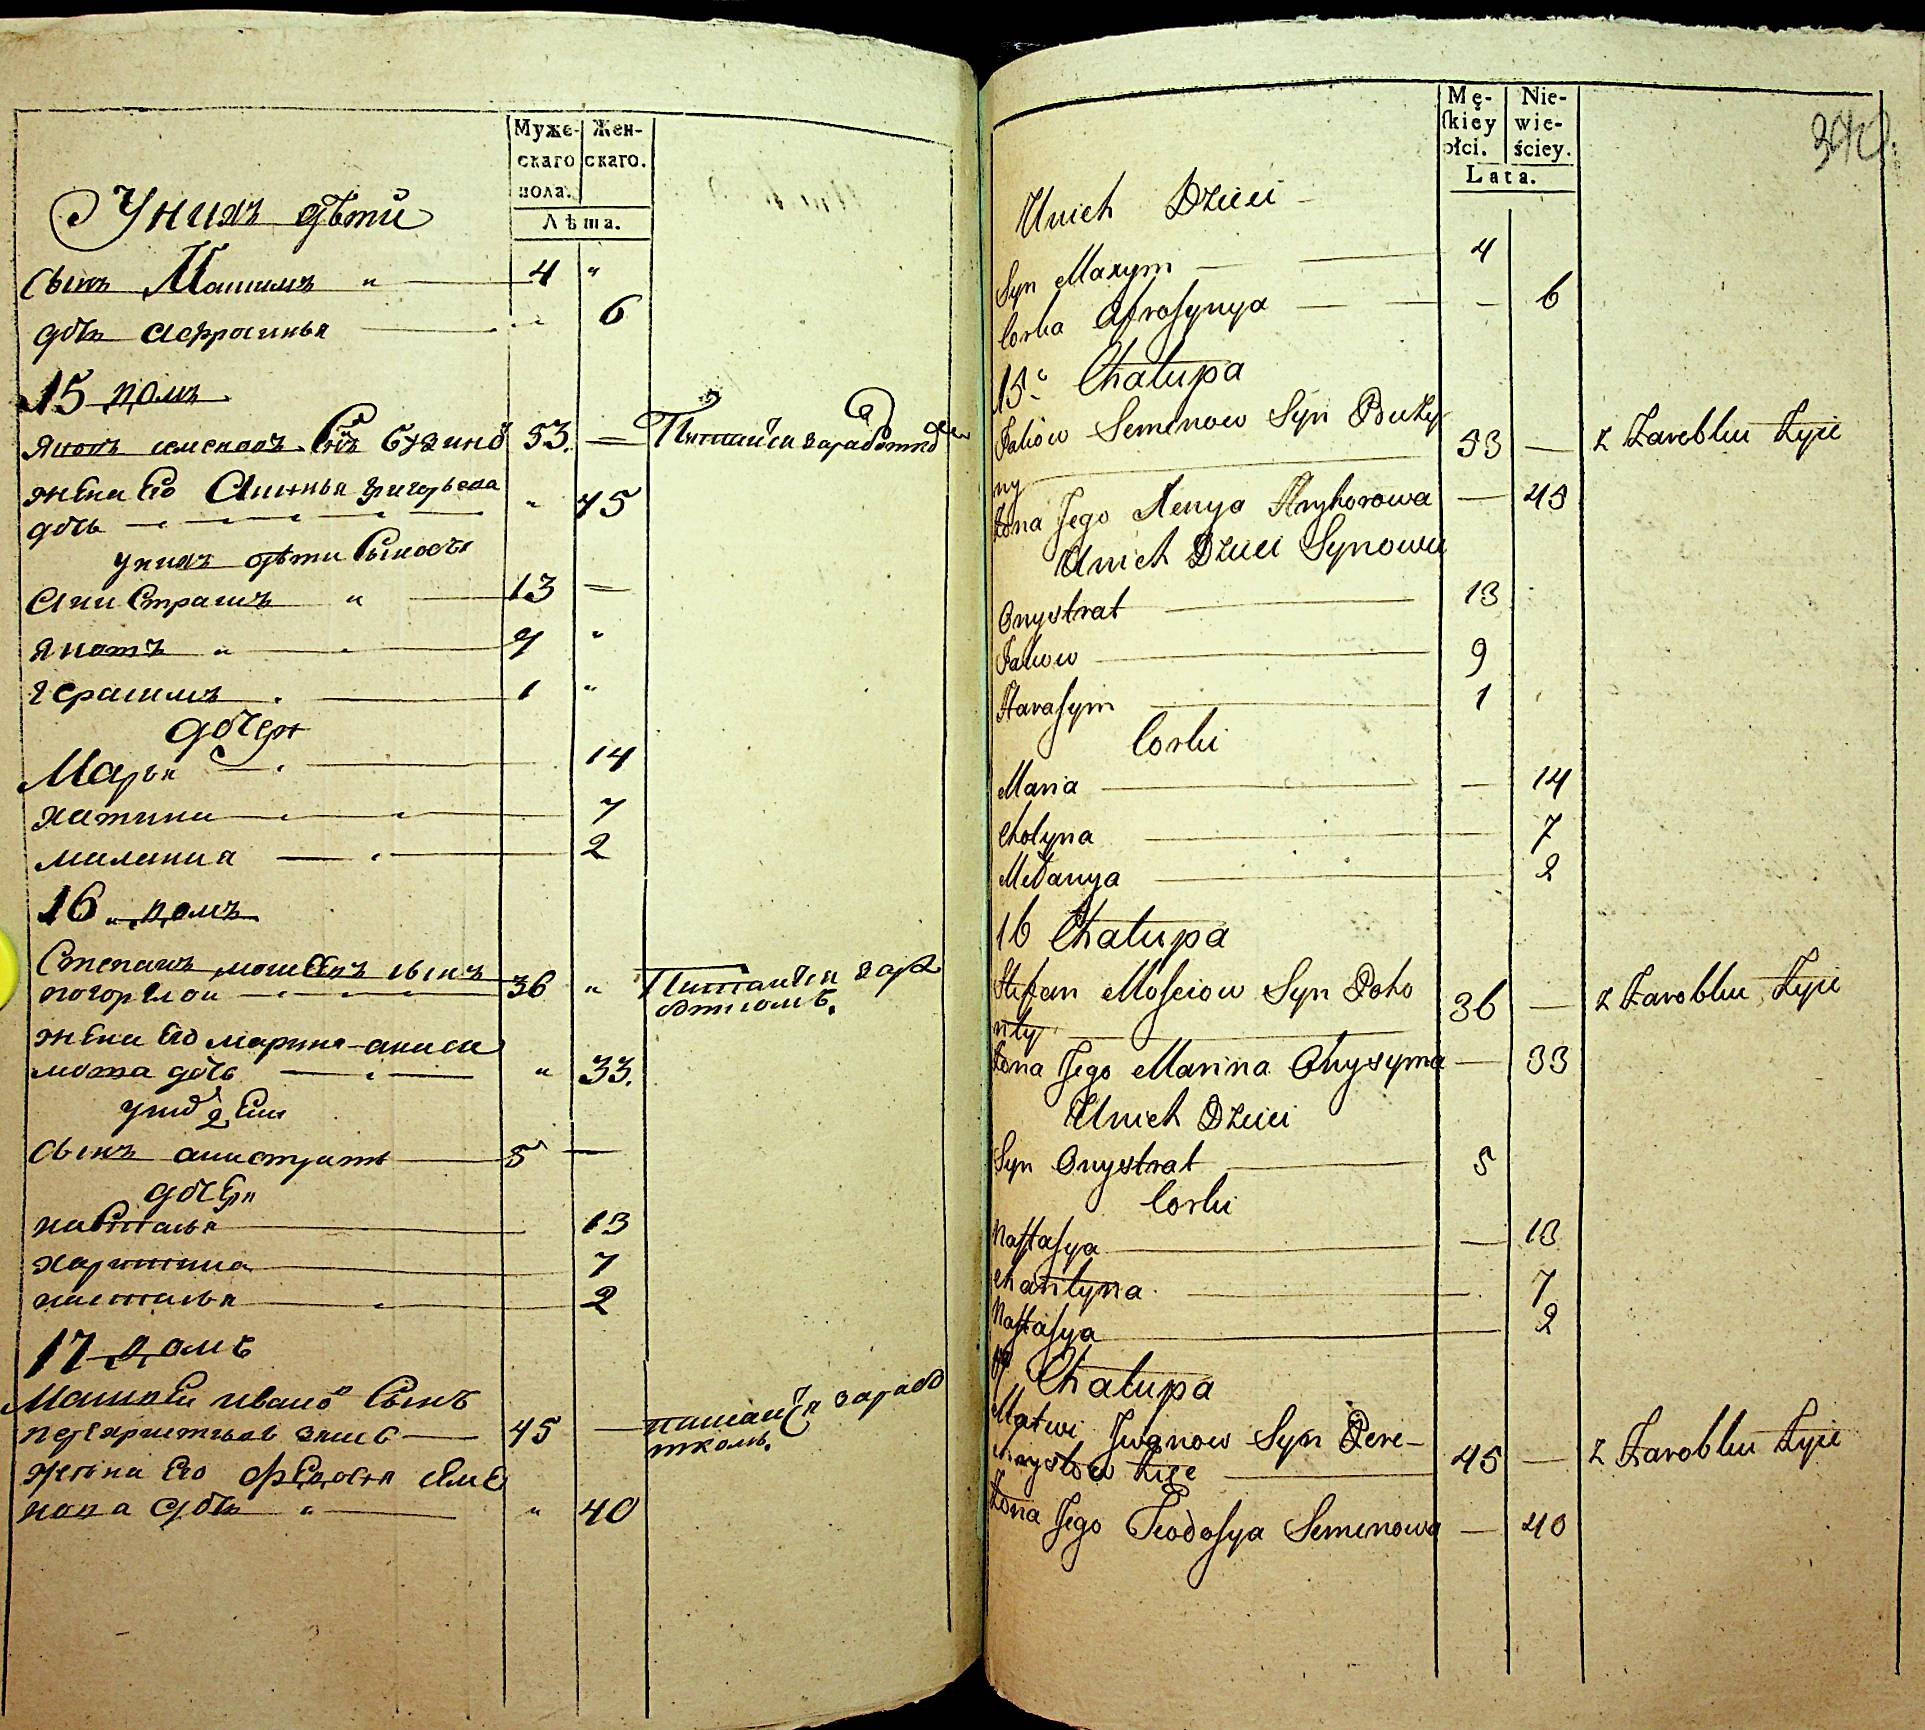 Муже-
скаго
пола.
Жен-
скаго.
Лѣта.
У нихъ дѣти
сынъ Максимъ " 4 "
дочь Афросинья 6
15 домъ
Яковъ Семеновъ Сынъ 53. —
жена Его Григорьева " 45
дочь
у нихъ дѣти Сыновья
Они Стратъ " 13 =
Яковъ " 9 "
Герасимъ 1 "
дочери
Марья 14
Хатина 7
Милания 2
16 домъ
Степанъ сынъ 36 " Питаится
жена Его Марина
мова дочь " 33.
сынъ Анистратъ 5 —
дочери
Настасья 13
Харитина 7
Настасья 2
17 домъ
Матвей Ивано Сынъ
45 — питаится зарабо
ткомъ.
жена Его Федосья Семе
нова дочь " " 40
Mę-
skiey
płci.
Nie-
wie-
ściey.
Lata.
340.
Unich Dzieci
Syn Maxym 4
Corka Afrosynya — 6
15. Chatupa
Jakow Semenow Syn Buży
ny 53 — z Zarobku Żyie
Żona Jego Xenya Hryhorowa — 45
Unich Dzieci Synowie
Onystrat 13
Jakow 9
Harasym 1
Corki
Maria — 14
Chotyna 7
Melanya 2
16 Chatupa
Stefan Mosciow Syn Poho
36 — z Zarobku Żyie
Żona Jego Marina Onysyma — 33
Unich Dzieci
Syn Onystrat 5
Corki
Nastasya — 13
Charityna 7
Nastasya 2
17 Chatupa
Matwi Iwanow Syn Pere-
45 — z Zarobku Żyie
Żona Jego Teodosya Semenowa — 40